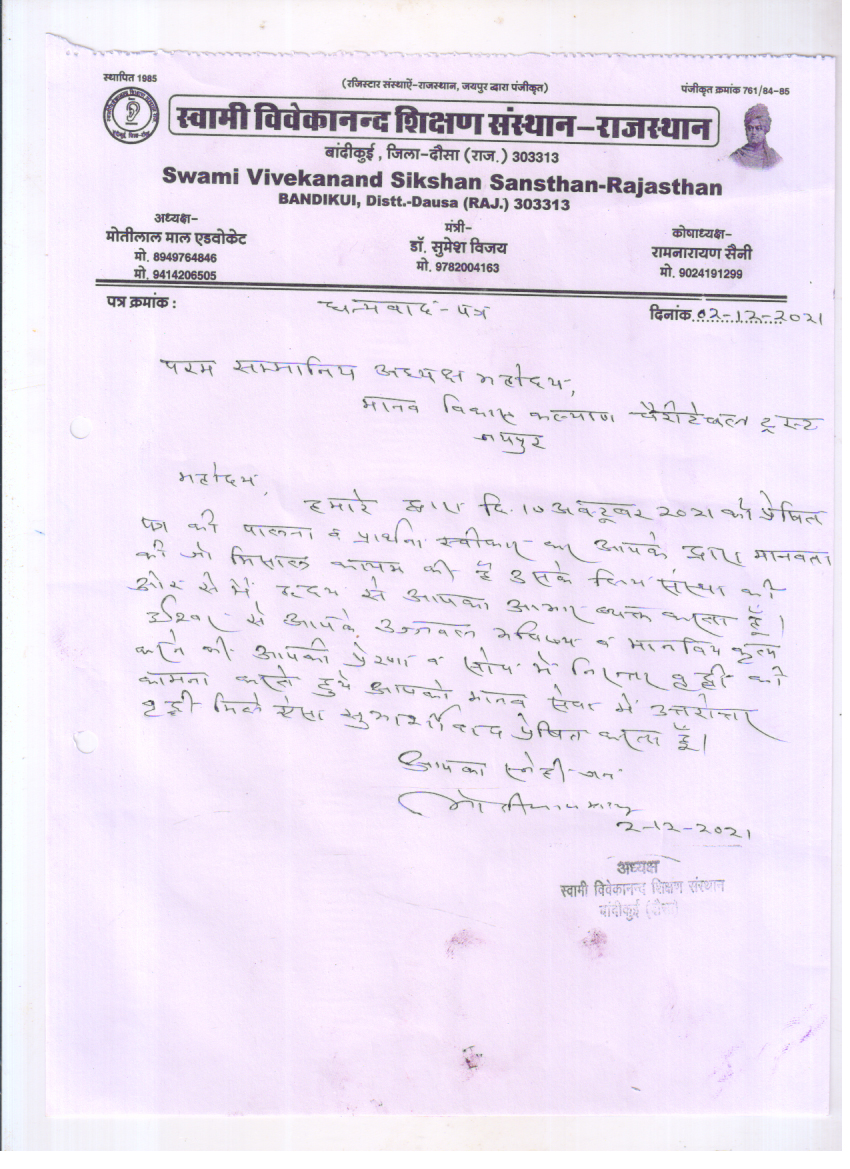 स्थापित 1985
(रजिस्टार संस्थाऐं-राजस्थान, जयपुर द्वारा पंजीकृत)
पंजीकृत क्रमांक 761/84-85
स्वामी विवेकानन्द शिक्षण संस्थान-राजस्थान
बांदीकुई, जिला-दौसा (राज.) 303313
Swami Vivekanand Sikshan Sansthan-Rajasthan
BANDIKUI, Distt.-Dausa (RAJ.) 303313
अध्यक्ष-
मोतीलाल माल एडवोकेट
मो. 8949764846
मो. 9414206505
मंत्री-
डॉ. सुमेश विजय
मो. 9782004163
कोषाध्यक्ष-
रामनारायण सैनी
मो. 9024191299
पत्र क्रमांक : धन्यवाद-पत्र दिनांक 02-12-2021
परम सम्मानिय अध्यक्ष महोदय,
मानव विकास कल्याण चैरीटेबल ट्रस्ट
जयपुर
महोदय,
हमारे द्वारा दि. 10 अक्टूबर 2021 को प्रेषित
पत्र की पालना व प्रार्थना स्वीकार कर आपके द्वारा मानवता
की जो मिसाल कायम की है उसके लिय संस्था की
ओर से मैं हृदय से आपका आभार व्यक्त करता हूँ।
ईश्वर से आपके उज्जवल भविष्य व मानविय कृत्य
करने की आपकी प्रेरणा व सोच में निरन्तर वृद्धी की
कामना करते हुये आपको मानव सेवा में उत्तरोत्तर
वृद्धी मिले ऐसा शुभाशीर्वाद प्रेषित करता हूँ।
आपका स्नेही-जन
2-12-2021
अध्यक्ष
स्वामी विवेकानन्द शिक्षण संस्थान
बांदीकुई (दौसा)